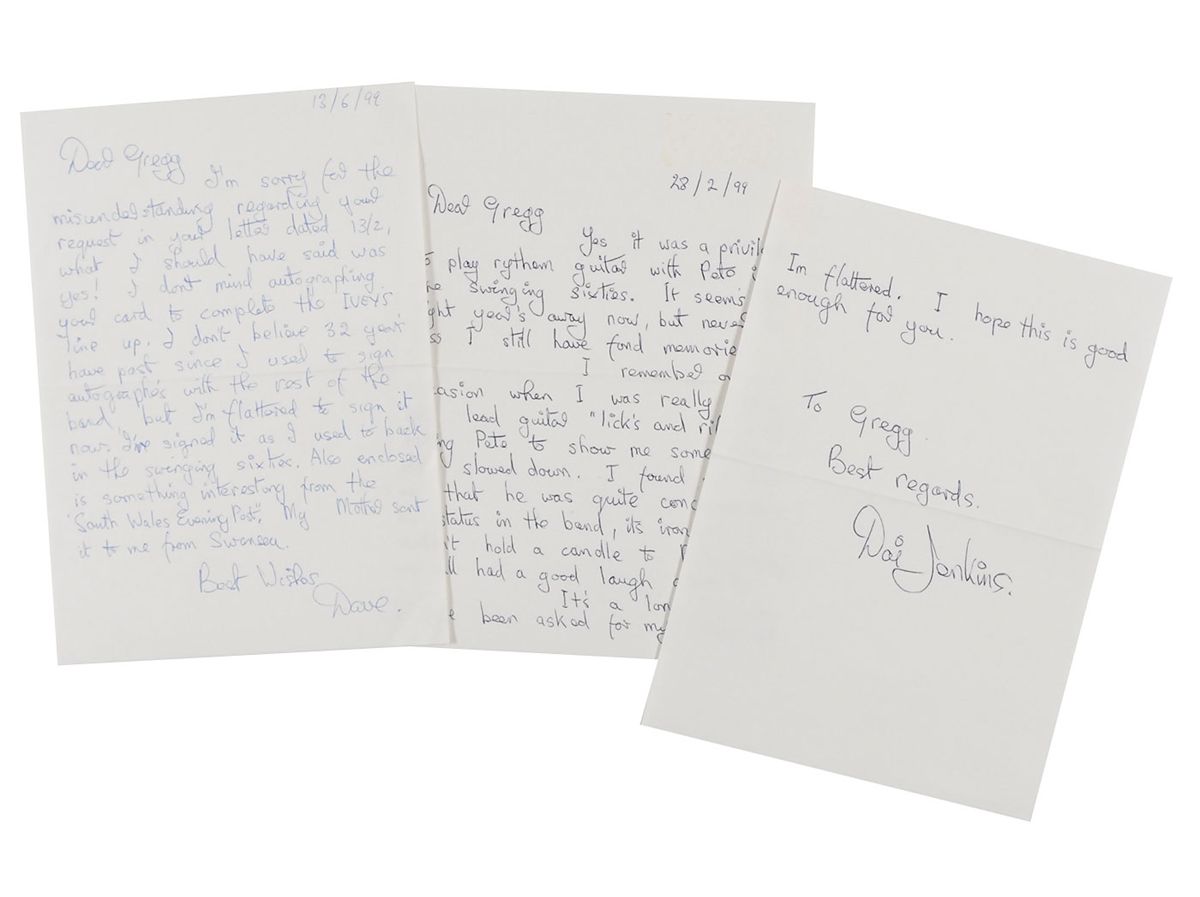 13/6/99
Dear Gregg
I'm sorry for the
misunderstanding regarding your
request in your letter dated 13/2,
what I should have said was
yes! I dont mind autographing
your card to complete the IVEY'S
line up. I don't believe 32 year's
have past since I used to sign
autograph's with the rest of the
band, but I'm flattered to sign it
now. I've signed it as I used to back
in the swinging sixties. Also enclosed
is something interesting from the
"South Wales Evening Post". My Mother sent
it to me from Swansea.
Best Wishes
Dave.
28/2/99
Dear Gregg
Yes it was a privil
play rythem guitar with Pete
swinging sixties. It seem's
ght year's away now, but never
ss I still have fond memorie
I remember on
casion when I was really
lead guitar "lick's and rif
ng Pete to show me some
slowed down. I found
that he was quite conc
status in the band, its iron
't hold a candle to
ll had a good laugh
It's a lon
e been asked for my
Im flattered. I hope this is good
enough for you.
To Gregg.
Best regards.
Dai Jenkins.